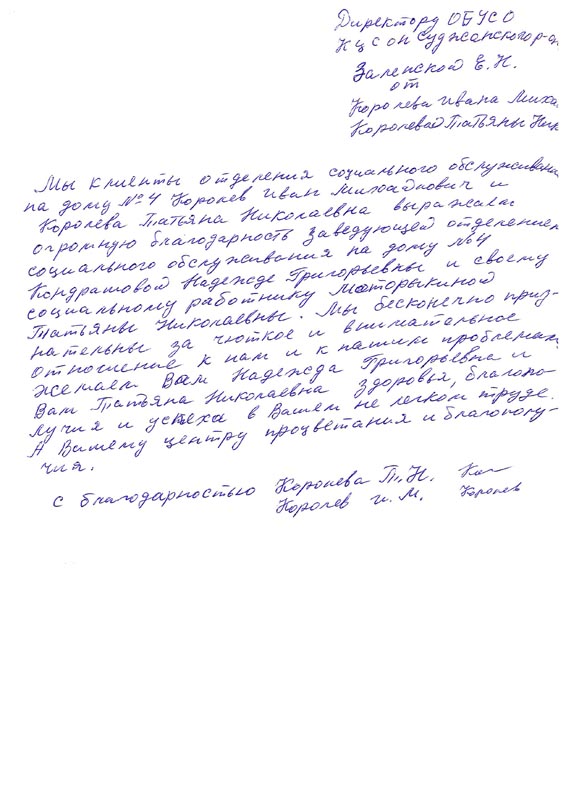 Директору ОБУСО
КЦСОН Суджанского р-
Заленской Е.Н.
от
Королева Ивана Миха
Королевой Татьяны Ник
Мы клиенты отделения социального обслуживан
на дому №4 Королев Иван Михайлович и
Королева Татьяна Николаевна выражаем
огромную благодарность Заведующей отделением
социального обслуживания на дому №4
Кондрашовой Надежде Григорьевны и своему
социальному работнику Моторыкиной
Татьяны Николаевны. Мы бесконечно приз-
нательны за чюткое и внимательное
отношение к нам и к нашим проблемам
желаем Вам Надежда Григорьевна и
Вам Татьяна Николаевна здоровья, благопо-
лучия и успеха в Вашем не легком труде.
А Вашему центру процветания и благополу-
чия.
с благодарностью Королева Т.Н.
Королев И.М. Королев